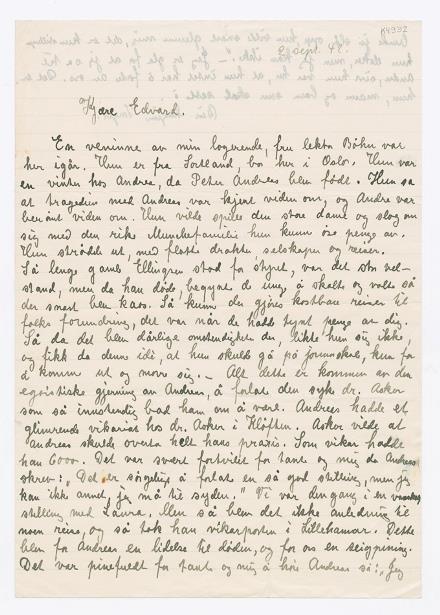 K4932
9 Sept. 48.
Kjære Edvard.
En veninne av min logerende, fru lektor Böhn var
her igår. Hun er fra Sortland, bor her i Oslo. Hun var
en vinter hos Andrea, da Peter Andreas blev född. Hun sa
at tragedien med Andreas var kjent viden om, og Andre var
berömt viden om. Hun vilde spille den store dame og slog om
sig med den rike Munchefamilie hun kunne öse penge av.
Hun strödde ut, med flotte drakter, selskaper og reiser.
Så lenge gamle Ellingsen stod for styret, var det stor vel-
stand, men da han döde begynte de unge å skalte og valte så
der snart blev kaos. Så kunde der gjöres kostbare reiser til
folks forundring, det var når de hadde tynt penge av dig.
Så da det blev dårlige omstendigheter der, likte hun sig ikke,
og fikk da denne idé, at hun skulde gå på jormorskole, kun for
å komme ut og more sig. — Alt dette er kommen av den
egoistiske gjerning av Andreas, å forlate den syke dr. Asker
som så innstendig bad ham om å være. Andreas hadde et
glimrende vikariat hos dr. Asker i Klöften. Asker vilde at
Andreas skulde overta hele hans praxis. Som vikar hadde
han 6000. Det var svært fortvilet for tante og mig da Andreas
skrev: „Det er sörgelig å forlate en så god stilling, men jeg
kan ikke annet, jeg må til syden." Vi var dengang i en vanskelig
stilling med Laura. Men så blev det ikke anledning til
noen reise, og så tok han vikarposten i Lillehamar. Dette
blev for Andreas en lidelse til döden, og for os en seigpining.
Det var pinefuldt for tante og mig å höre Andreas si: „Jeg